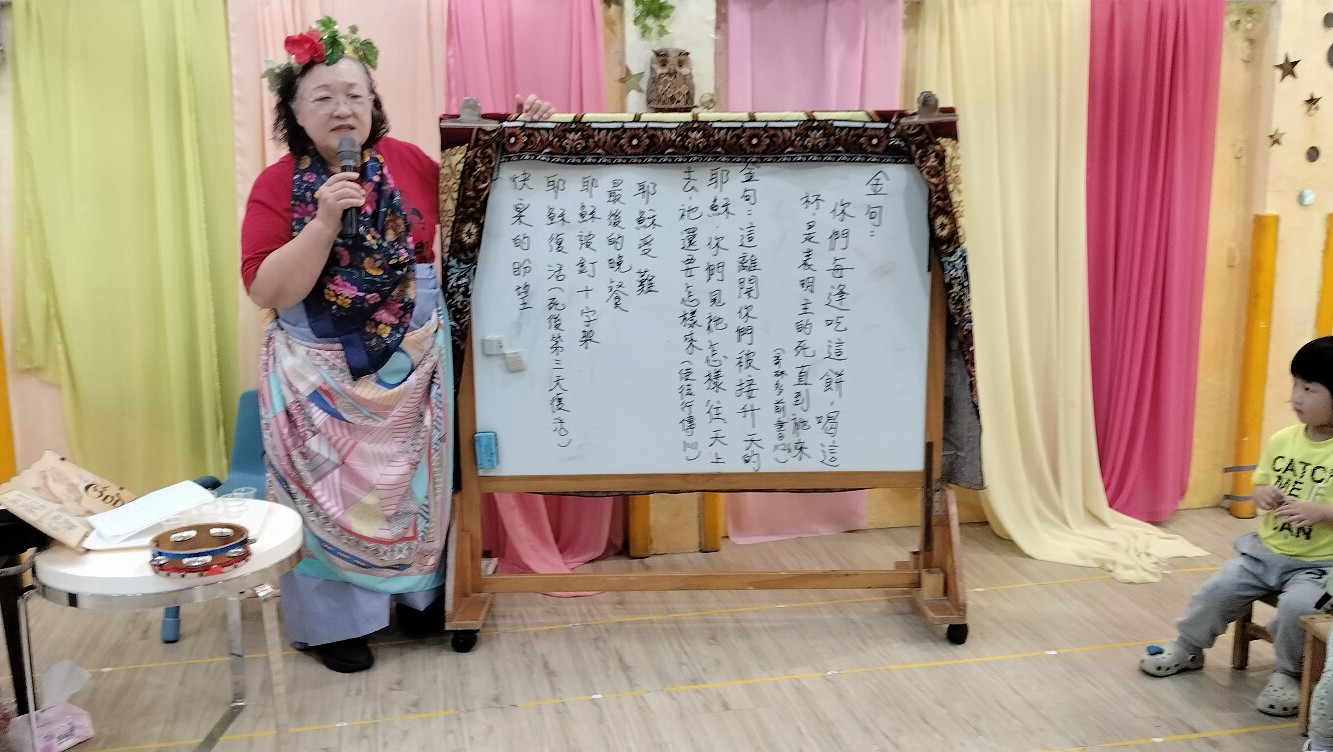 金句：
你們每逢吃這餅，喝這
杯，是表明主的死直到祂來
(哥林多前書
金句：這離開你們被接升天的
耶穌，你們見祂怎樣往天上
去，祂還要怎樣來(使徒行傳
耶穌受難
最後的晚餐
耶穌被釘十字架
耶穌復活(死後第三天復活)
快樂的盼望
CATC
ME